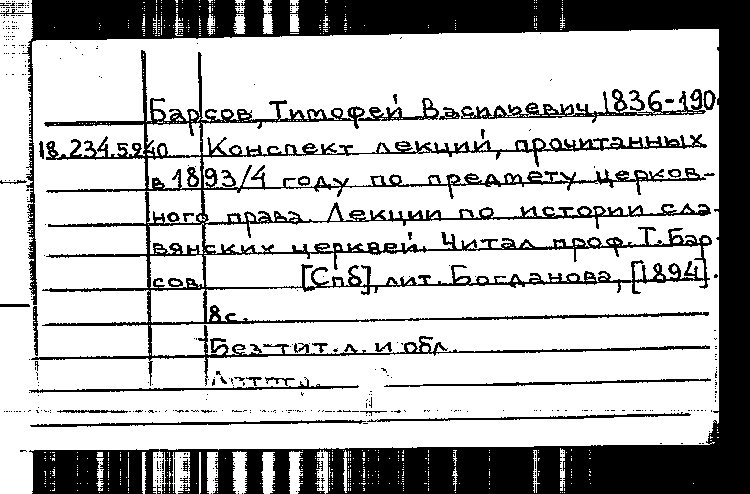 Барсов, Тимофей Васильевич, 1836-190
18.234.5.240 Конспект лекций, прочитанных
в 1893/4 году по предмету церков-
ного права. Лекции по истории сла-
вянских церквей. Читал проф. Т. Бар-
сов. [Спб], лит. Богданова, [1894].
8с.
Без тит. л. и обл.